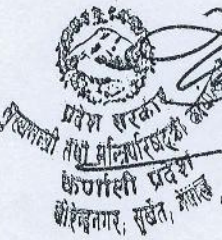 प्रदेश सरकार
मुख्यमन्त्री तथा मन्त्रिपरिषद्को कार्यालय
कर्णाली प्रदेश
बीरेन्द्रनगर, सुर्खेत, नेपाल